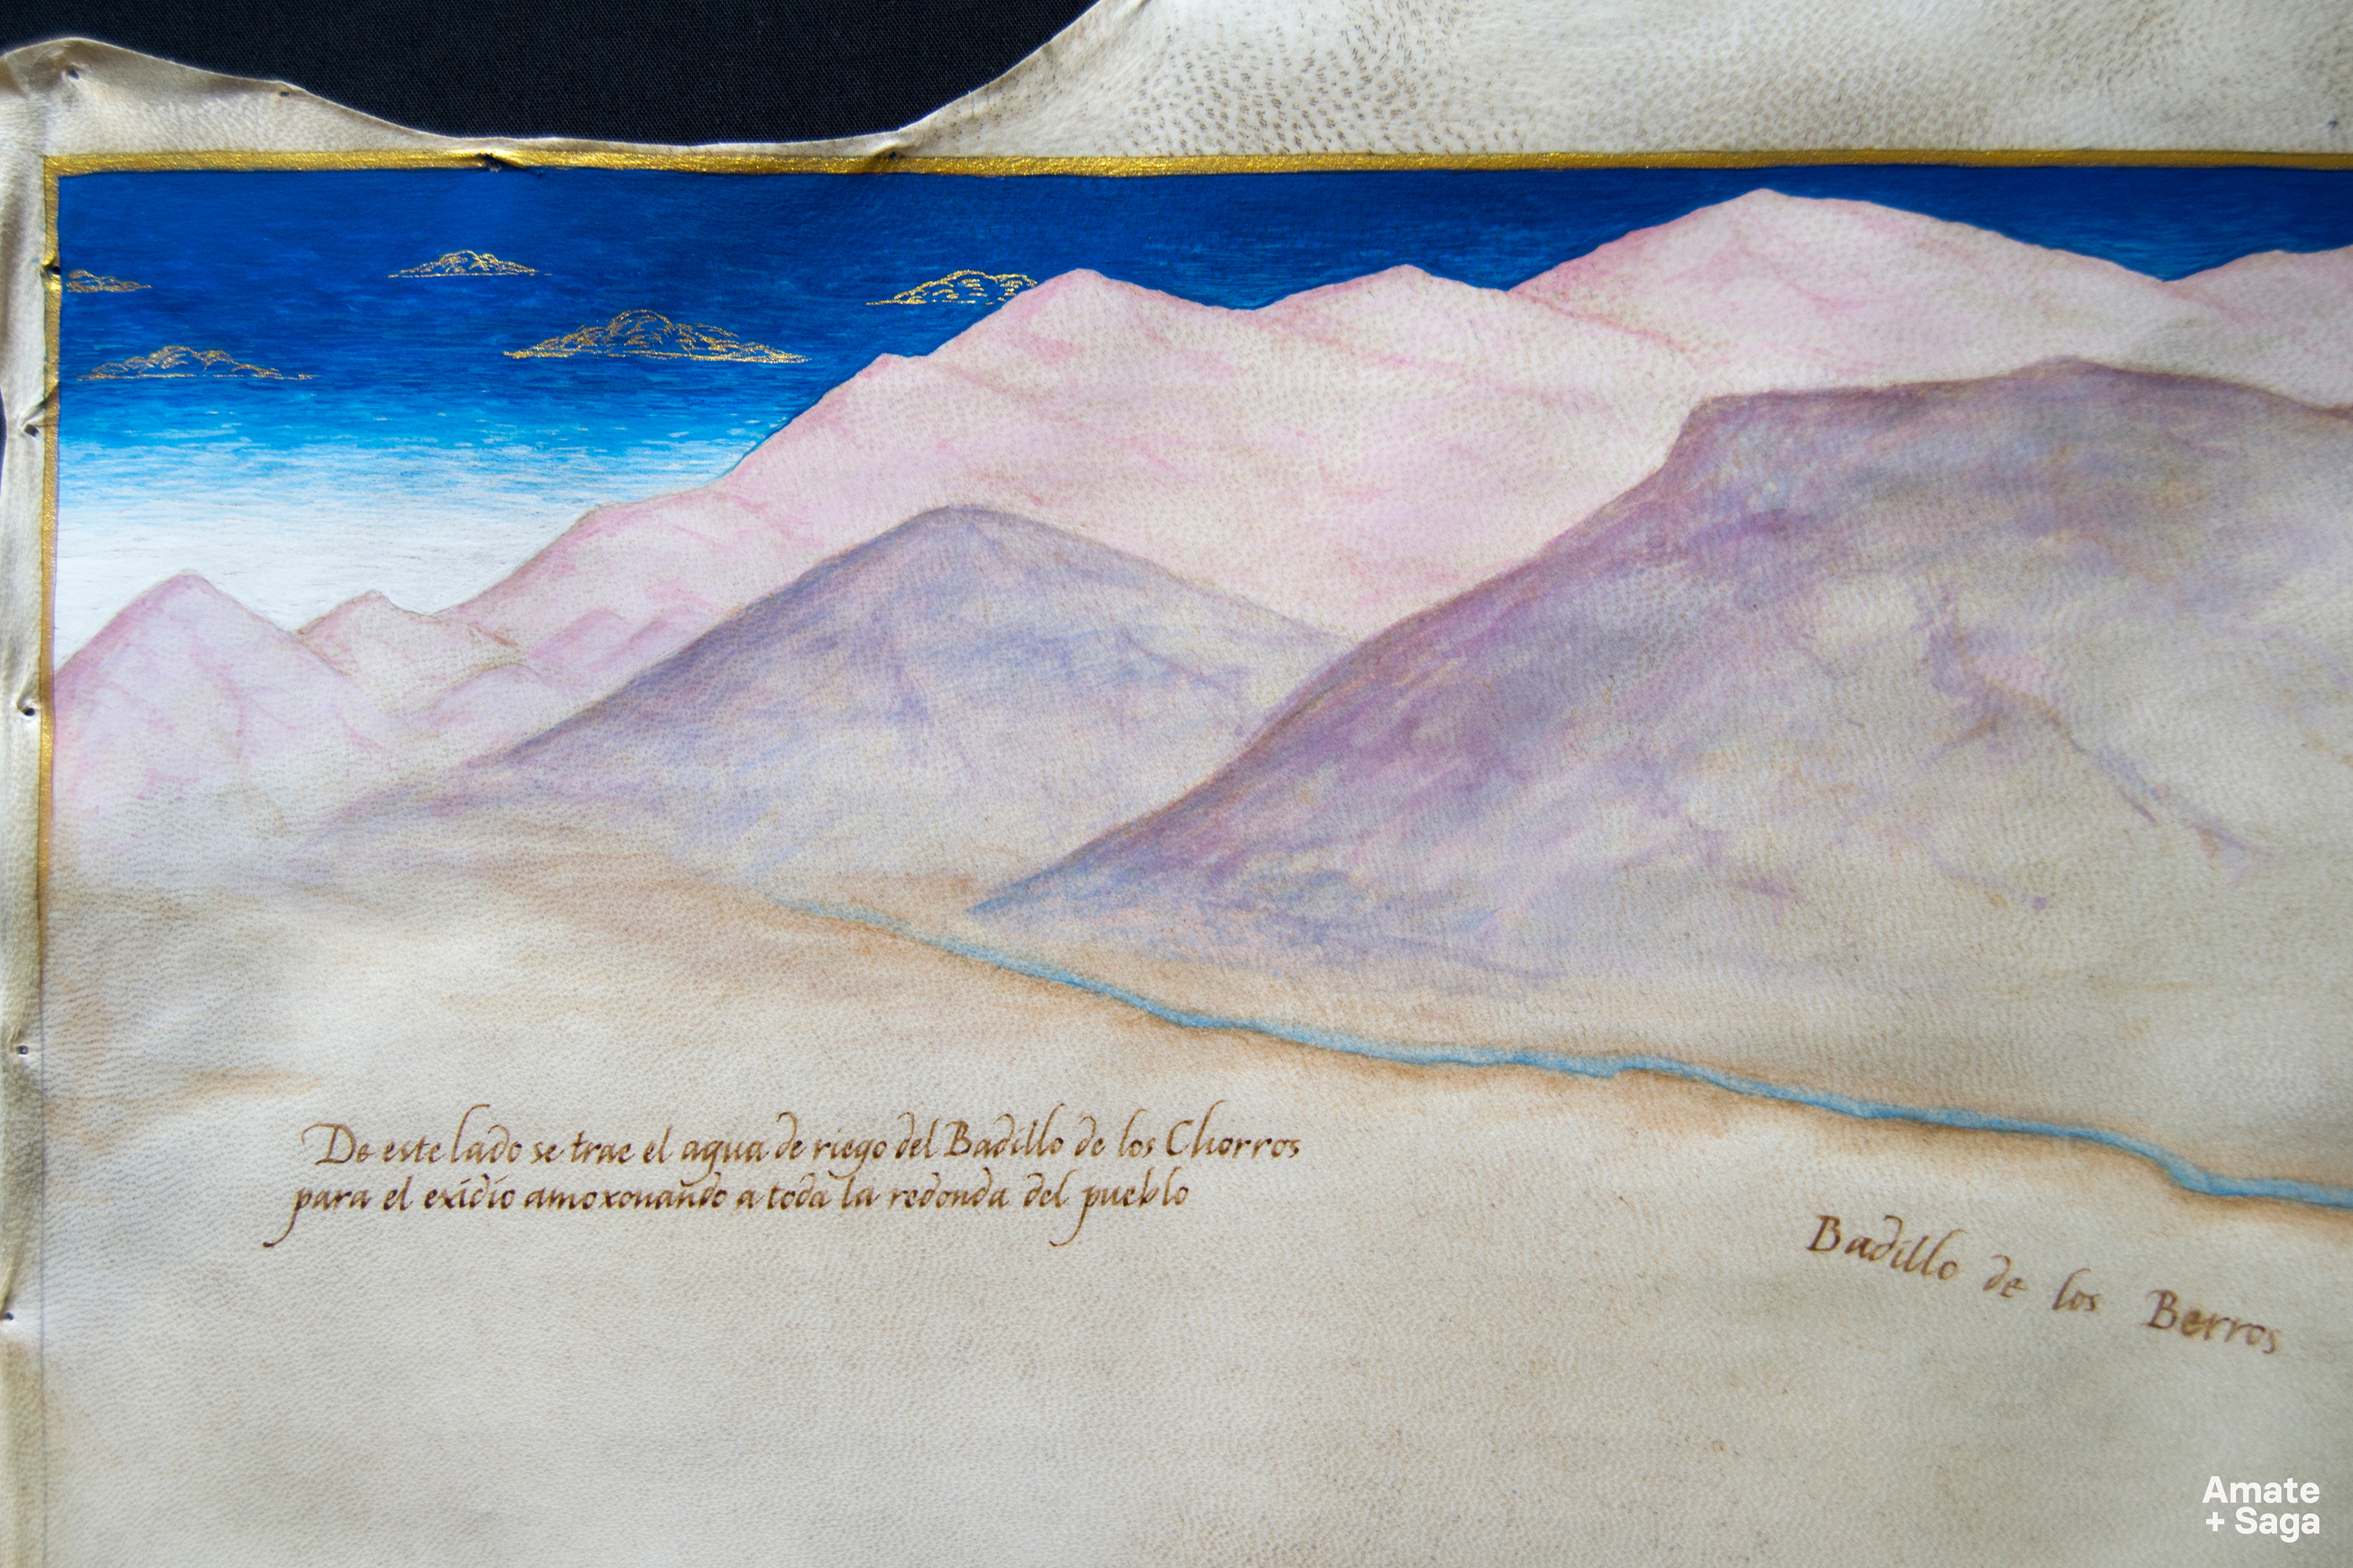 De este lado se trae el agua de riego del Badillo de los Chorros
para el exidio amoxonando a toda la redonda del pueblo
Badillo de los Berros
Amate
+ Saga